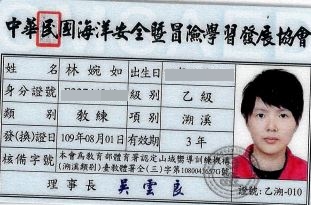 中華民國海洋安全暨冒險學習發展協會
姓名 林婉如 出生日
身分證號 級別 乙級
類別 教練 項別 溯溪
發(換)證日 109年08月01日 有效期 3年
核備字號 本會為教育部體育署認定山域嚮導訓練機構
(溯溪類別)臺教體署全(三)字第1080041657G號
理事長 吳雲良
證號:乙溯-010